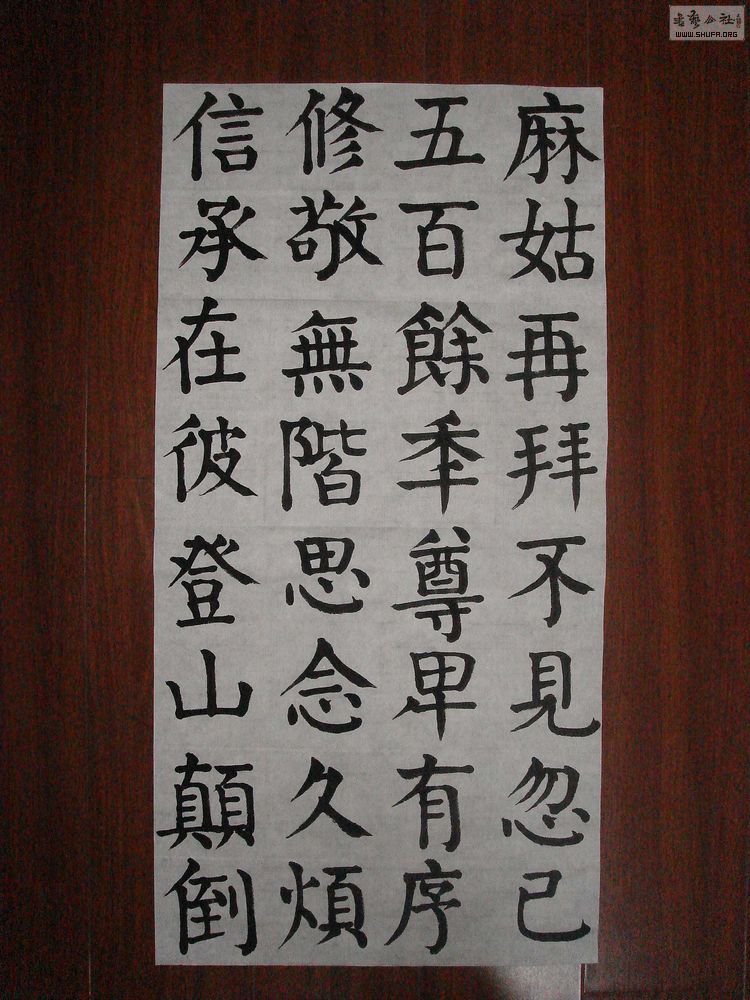 麻姑再拜不見忽已
五百餘季尊卑有序
修敬無階思念久煩
信承在彼登山顛倒
WWW.SHUFA.ORG